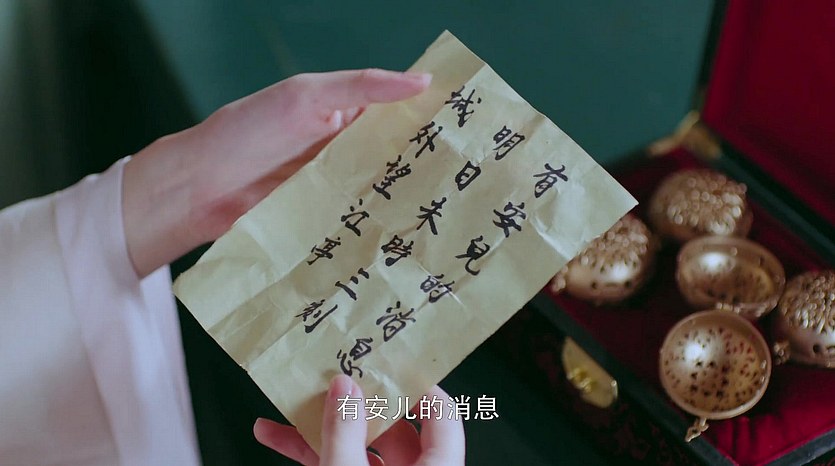 有安兒的消息
明日未時三刻
城外望江亭
有安儿的消息